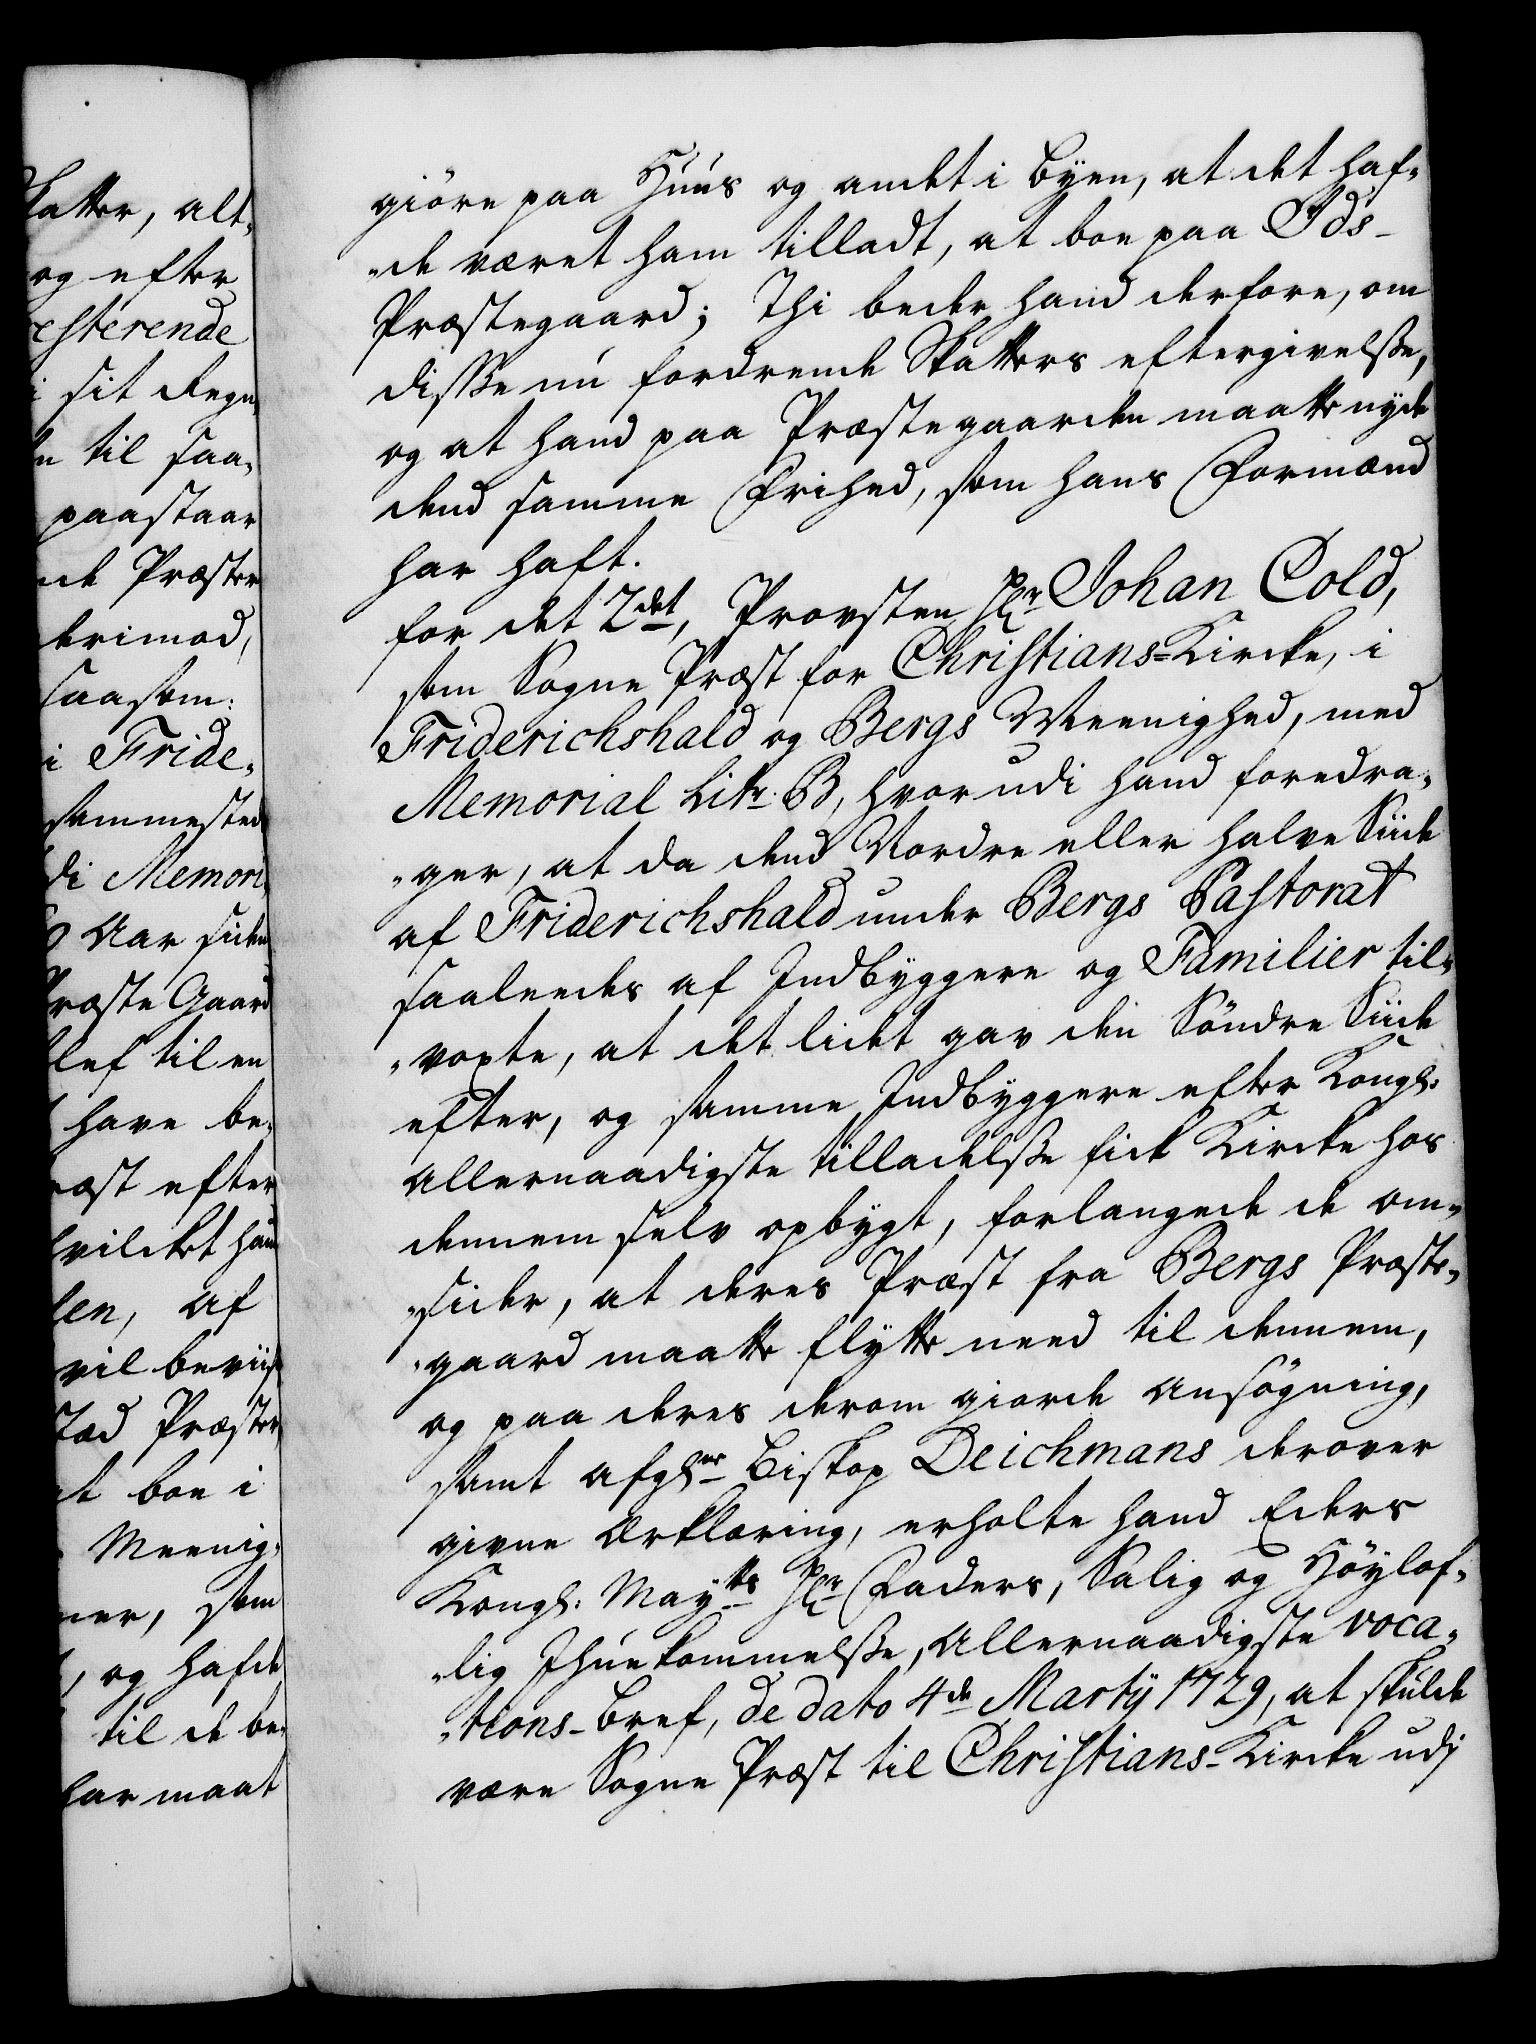 katter, alt„
og efter
esterende
i sit Regn„
n til saa„
paastaar
nde Præster
krimod,
saasom:
i Fride„
sammested
di Memori„
0 Aar siden
Præste Gaard
lef til en
have be„
ræst efter
hvilcket hand
len, af
vil beviis
stad Præster
at boe i
Meenig„
ner, som
, og hafde
til de be„
har maat
giöre paa Huus og andet i Byen, at det haf„
„de været ham tilladt, at boe paa Ids-
Præstegaard; Thi beder hand derfore, om
disse nu fordrende Skatters eftergivelsse,
og at hand paa Præstegaarden maatte nyde
dend samme Frihed, som hans Formænd
har haft.
for det 2det, Provsten Hr Johan Cold,
som Sogne Præst for Christians-Kircke, i
Friderichshald og Bergs Meenighed, med
Memorial Litr. B, hvorudi hand foredra„
„ger, at da dend Nordre eller halve Siide
af Friderichshald under Bergs Pastorat
saaleedes af Indbyggere og Familier til„
„voxte, at det lidet gav den Söndre Siide
efter, og samme Indbyggere efter Kongl:
allernaadigste tilladelsse fick Kircke hos
dennem selv opbygt, forlangede de om„
„sider, at deres Præst fra Bergs Præste„
„gaard maatte flytte need til dennem,
og paa deres derom giorde ansögning,
samt afgl:r Biskop Deichmans derover
givne Erklæring, erholte hand Eders
Kongl: Maytts Hr Faders, Salig og Höylof„
„lig Ihuekommelsse, Allernaadigste voca„
„tions-Bref, de dato 4de Martij 1729, at skulde
være Sogne Præst til Christians-Kircke udj